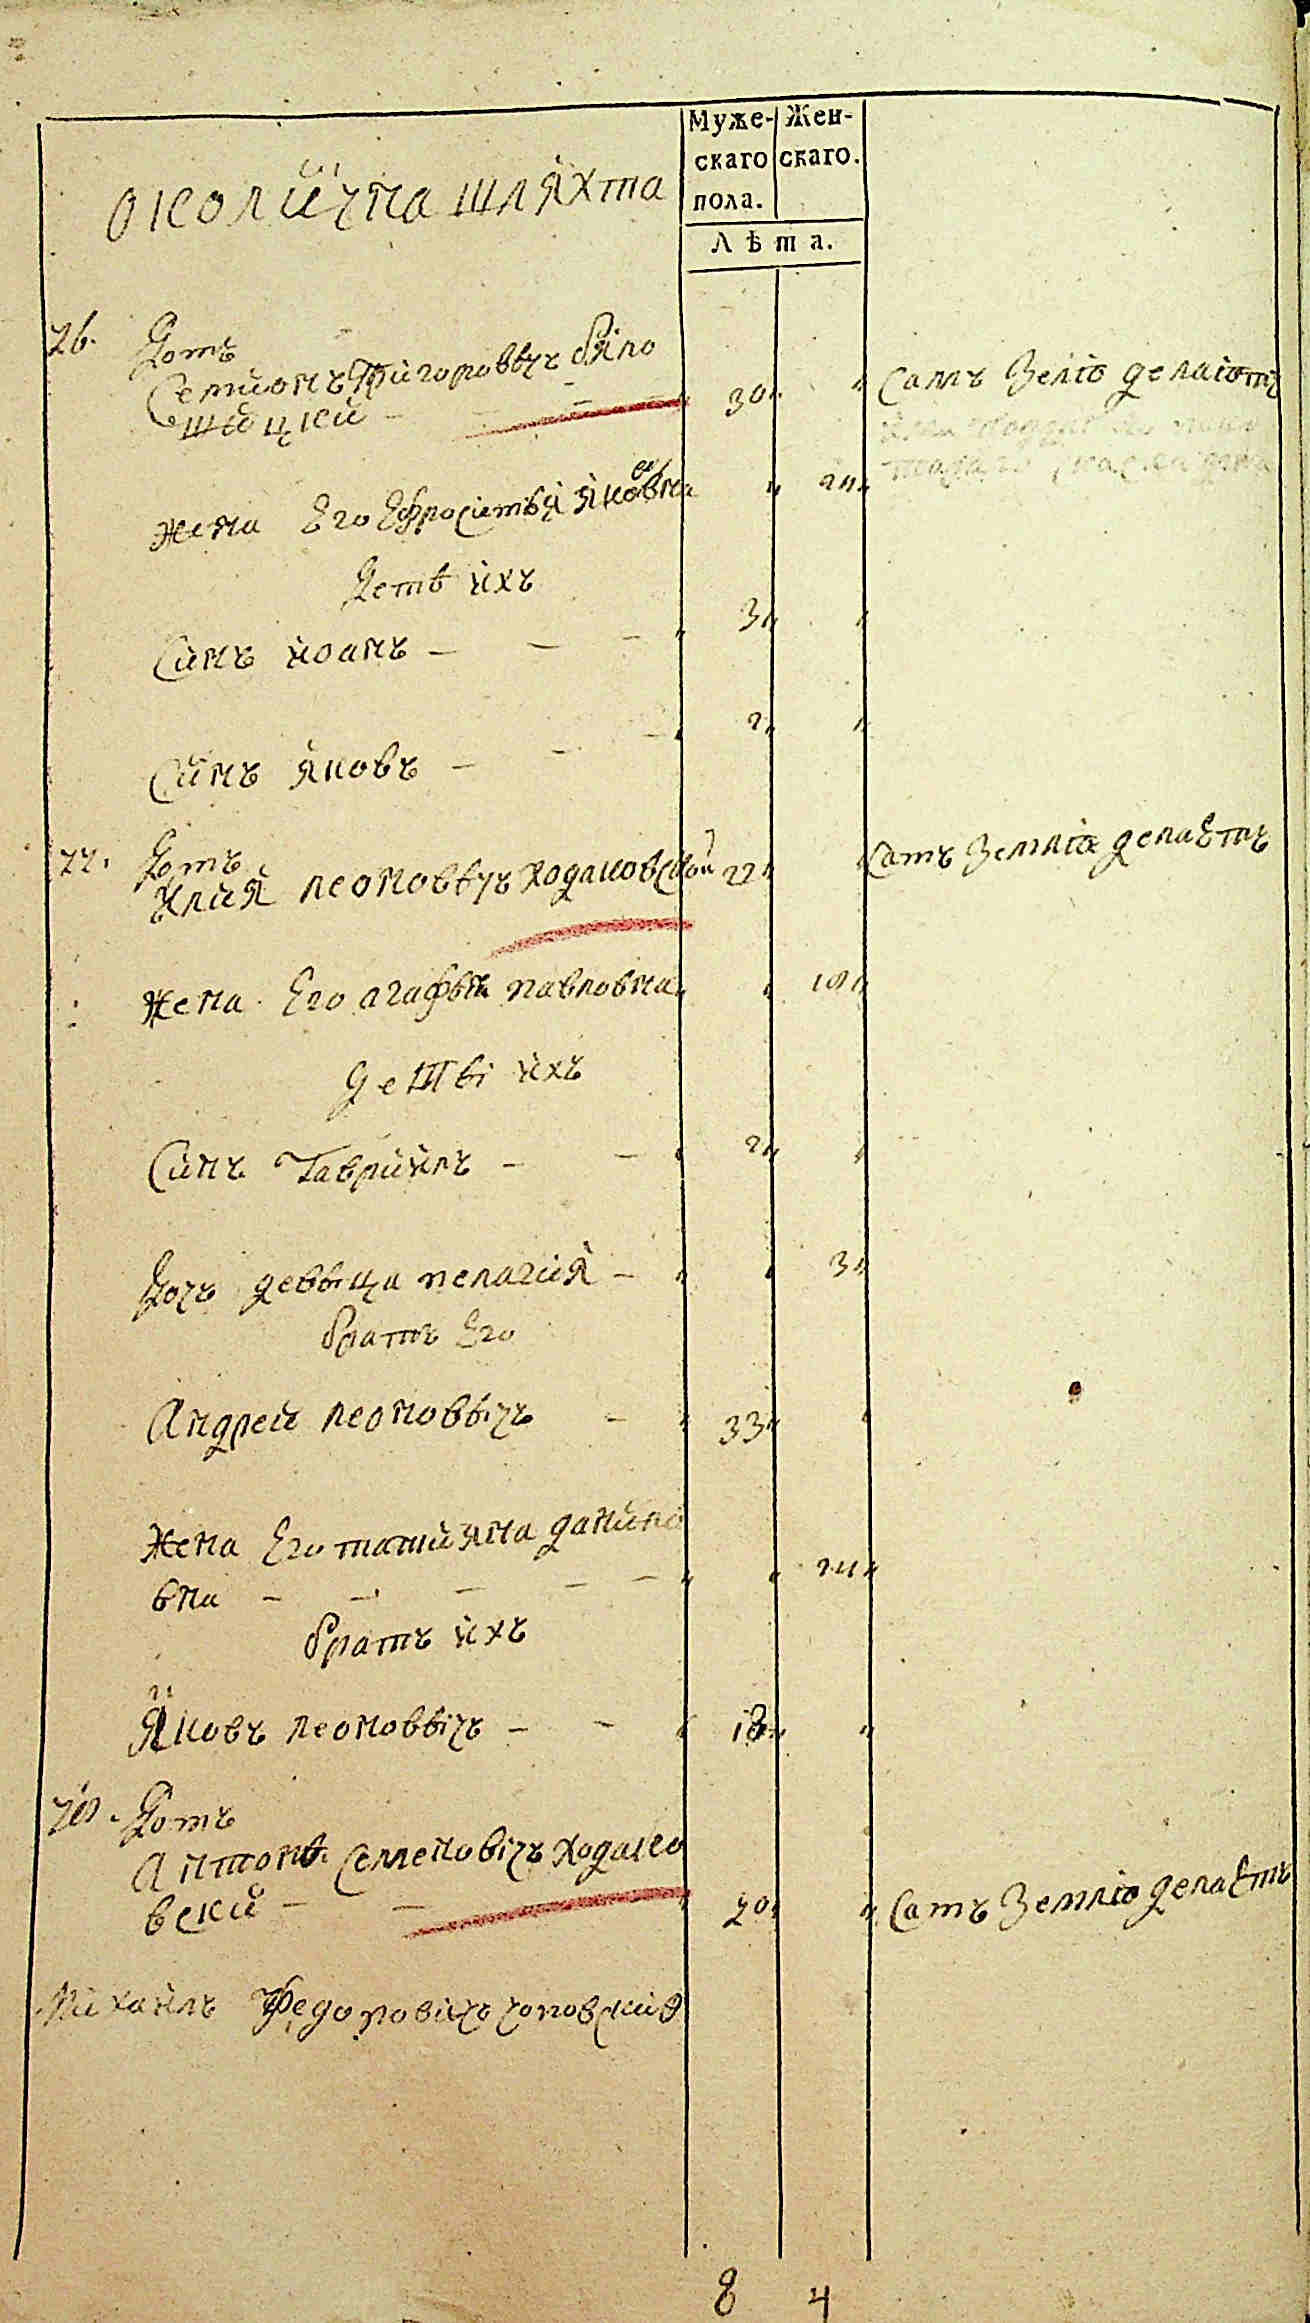 Муже- Жен-
скаго скаго.
пола.
Лѣта.
околична шляхта
26. Домъ
Семионъ Григоровичъ бяло
шицкий 30 „ Самъ Землю делаютъ
жена Его Ефросиния Яковна „ 24
Дети ихъ
Синъ иоанъ 3 „
Синъ яковъ 2 „
27. Домъ
Илия леоновичъ ходаковский 22 „ Самъ Землю делаЕтъ
жена Его агафия павловна „ 18
Дети ихъ
Синъ Гавриилъ 2 „
Дочъ девица пелагия „ 3
братъ Его
Андрей леоновичъ 33 „
Жена Его татияна данило
вна „ 24
братъ ихъ
Яковъ леоновичъ 18 „
28. Домъ
Антонъ Семеновичъ ходако
вский 20 „ Самъ Землю делаЕтъ
Михаилъ Федоровичъ
8 4